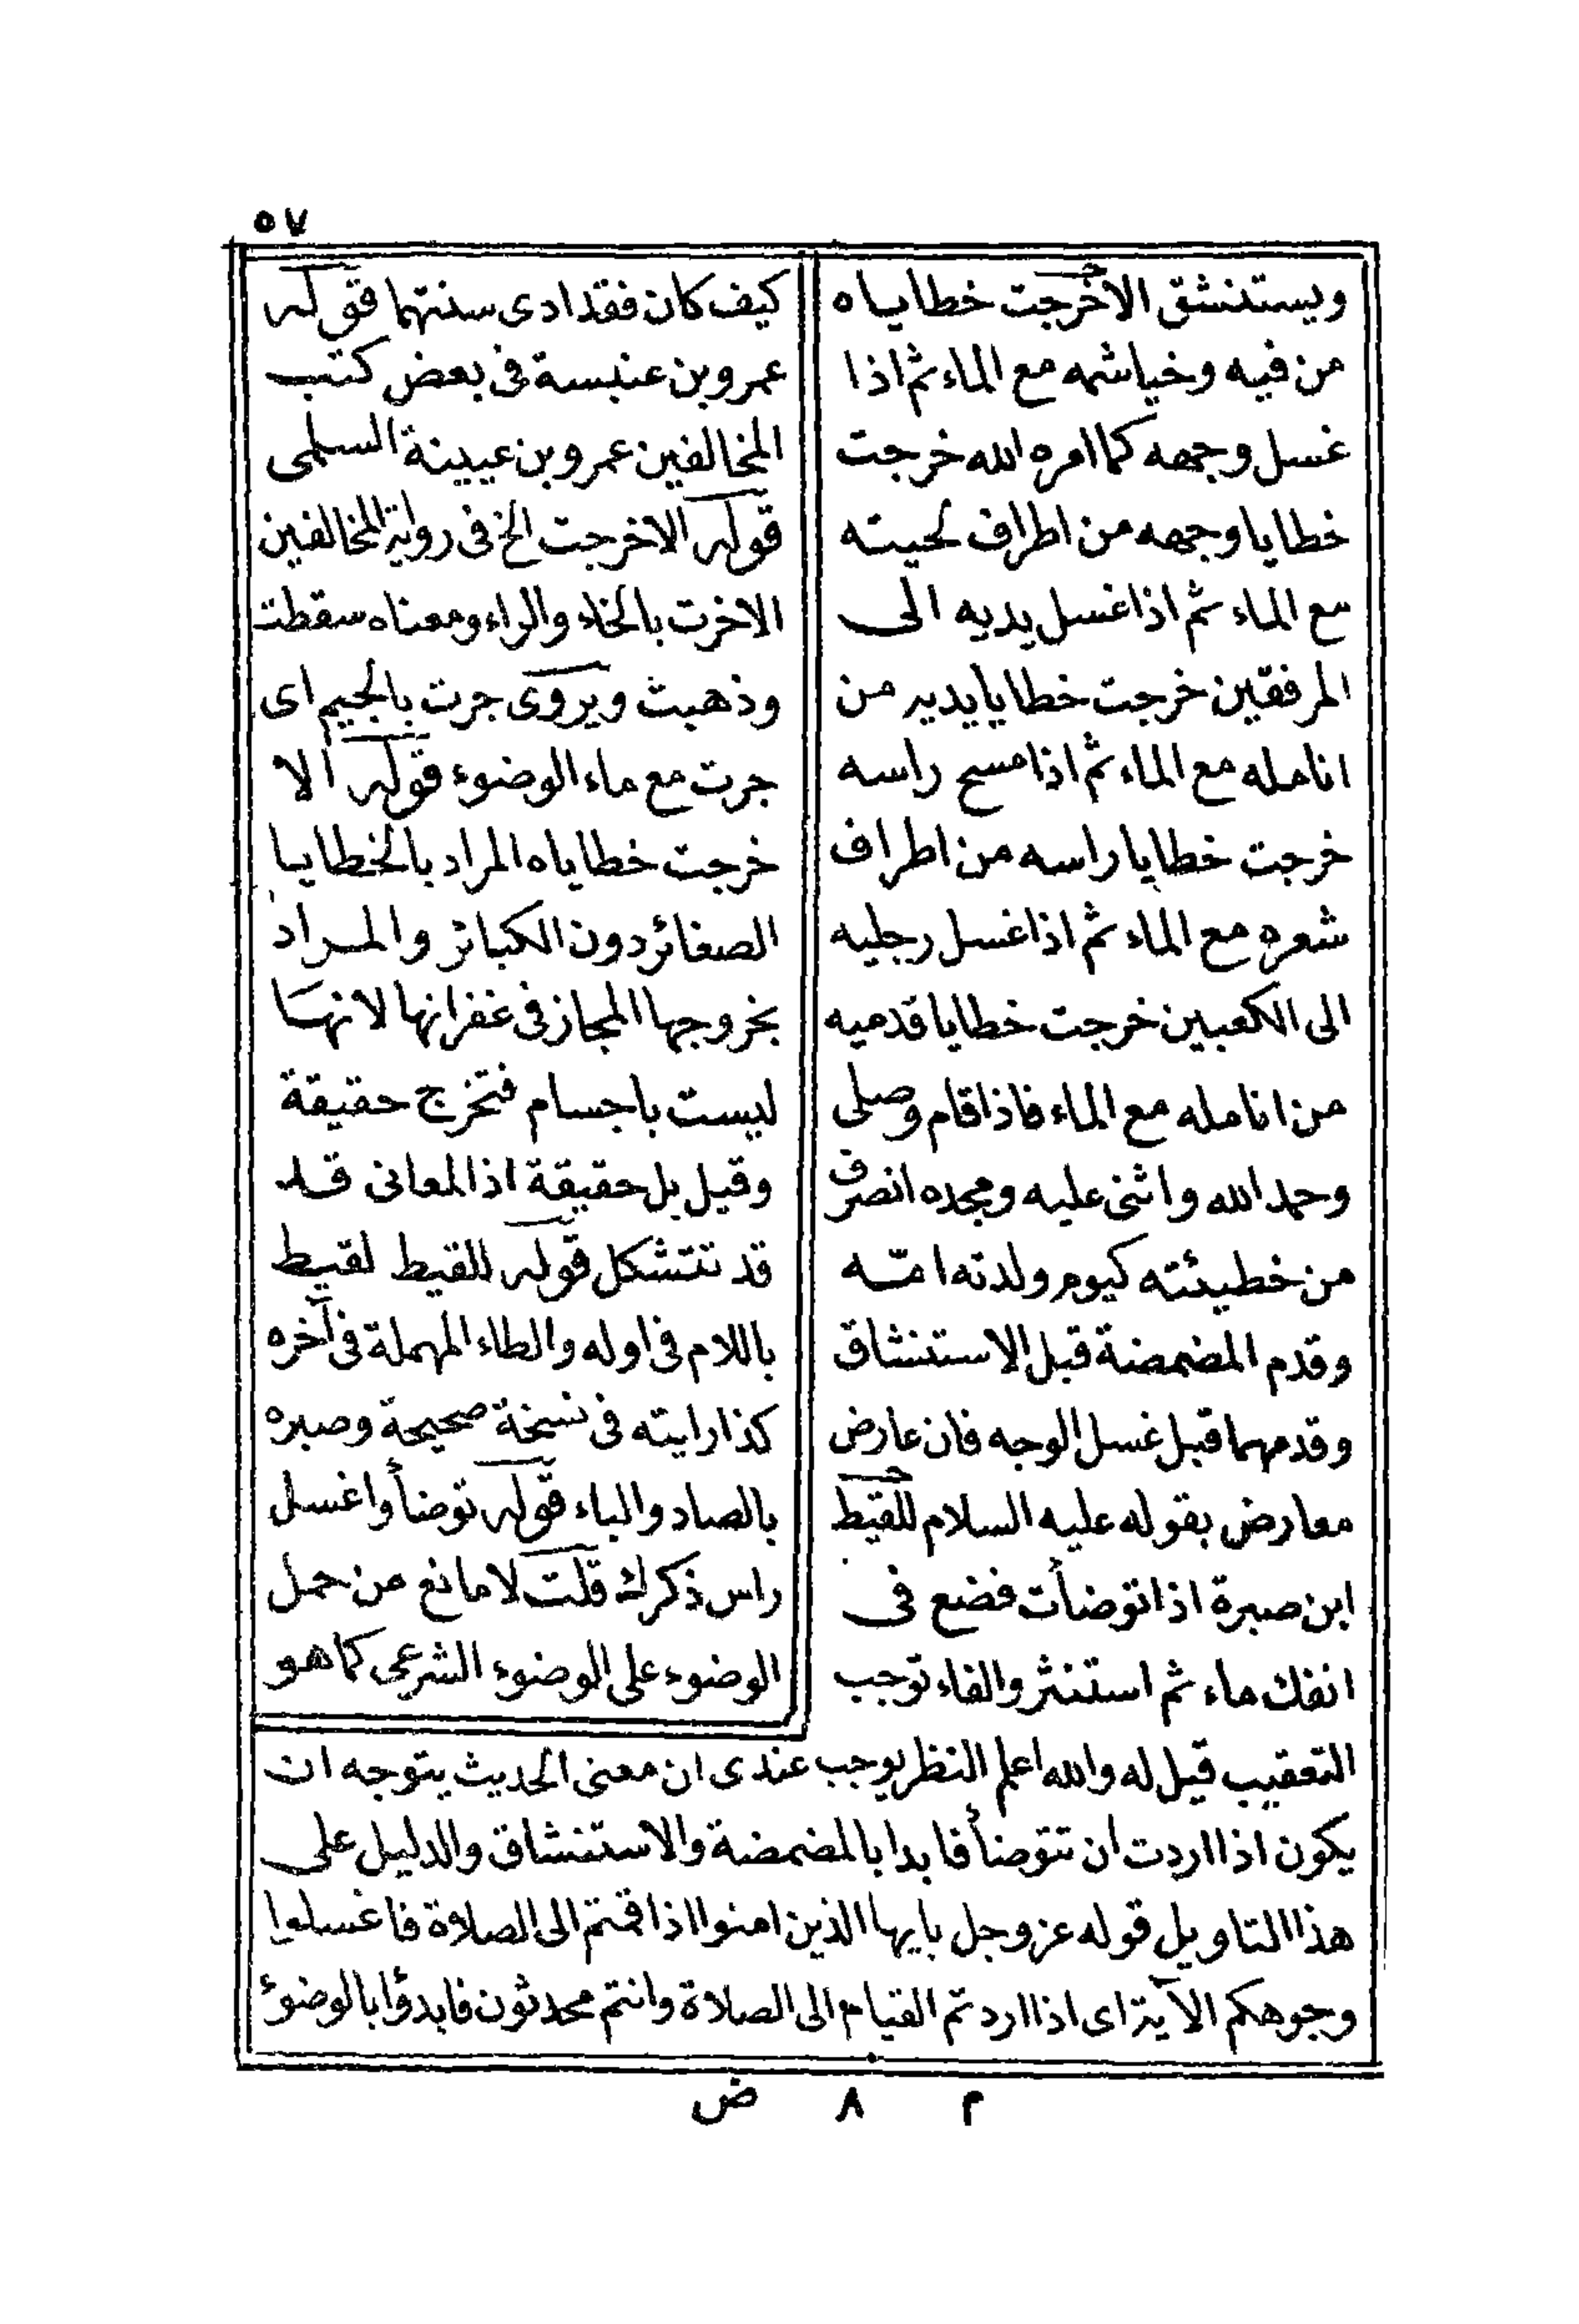 ٥٧
ويستنشق الاخرجت خطاياه
من فيه وخياشمه مع الماء ثم اذا
غسل وجهه كما امره الله خرجت
خطايا وجهه من اطراف لحيته
مع الماء ثم اذا غسل يديه الى
المرفقين خرجت خطايا يديه من
انامله مع الماء ثم اذا مسح راسه
خرجت خطايا راسه من اطراف
شعره مع الماء ثم اذا غسل رجليه
الى الكعبين خرجت خطايا قدميه
من انامله مع الماء فاذا قام وصلى
وحمد الله واثنى عليه ومجده انصرف
من خطيئته كيوم ولدته امّه
وقدم المضمضة قبل الاستنشاق
وقدمهما قبل غسل الوجه فان عارض
معارض بقوله عليه السلام للقيط
ابن صبرة اذا توضأت فضع فى
انفك ماء ثم استنثر والفاء توجب
كيف كان فقد ادى سنتهما قوله
عمرو بن عنبسة فى بعض كتب
المخالفين عمرو بن عيينة السلمى
قوله الاخرجت الخ فى رواية المخالفين
الاخرت بالخاء والراء ومعناه سقطت
وذهبت ويروى جرت بالجيم اى
جرت مع ماء الوضوء قوله الا
خرجت خطاياه المراد بالخطايا
الصغائر دون الكبائر والمراد
بخروجها المجاز فى غفرانها لانها
ليست باجسام فتخرج حقيقة
وقيل بل حقيقة اذ المعانى قد
قد تتشكل قوله للقيط لقيط
باللام فى اوله والطاء المهملة فى آخره
كذا رايته فى نسخة صحيحة وصبره
بالصاد والباء قوله توضأ واغسل
راس ذكرك قلت لا مانع من حمل
الوضوء على الوضوء الشرعى كما هو
التعقيب قيل له والله اعلم النظر يوجب عندى ان معنى الحديث يتوجه ان
يكون اذا اردت ان تتوضأ فابدا بالمضمضة والاستنشاق والدليل على
هذا التاويل قوله عز وجل يايها الذين امنوا اذا قمتم الى الصلاة فاغسلوا
وجوهكم الآية اى اذا اردتم القيام الى الصلاة وانتم محدثون فابدؤا بالوضوء
م ٨ ض